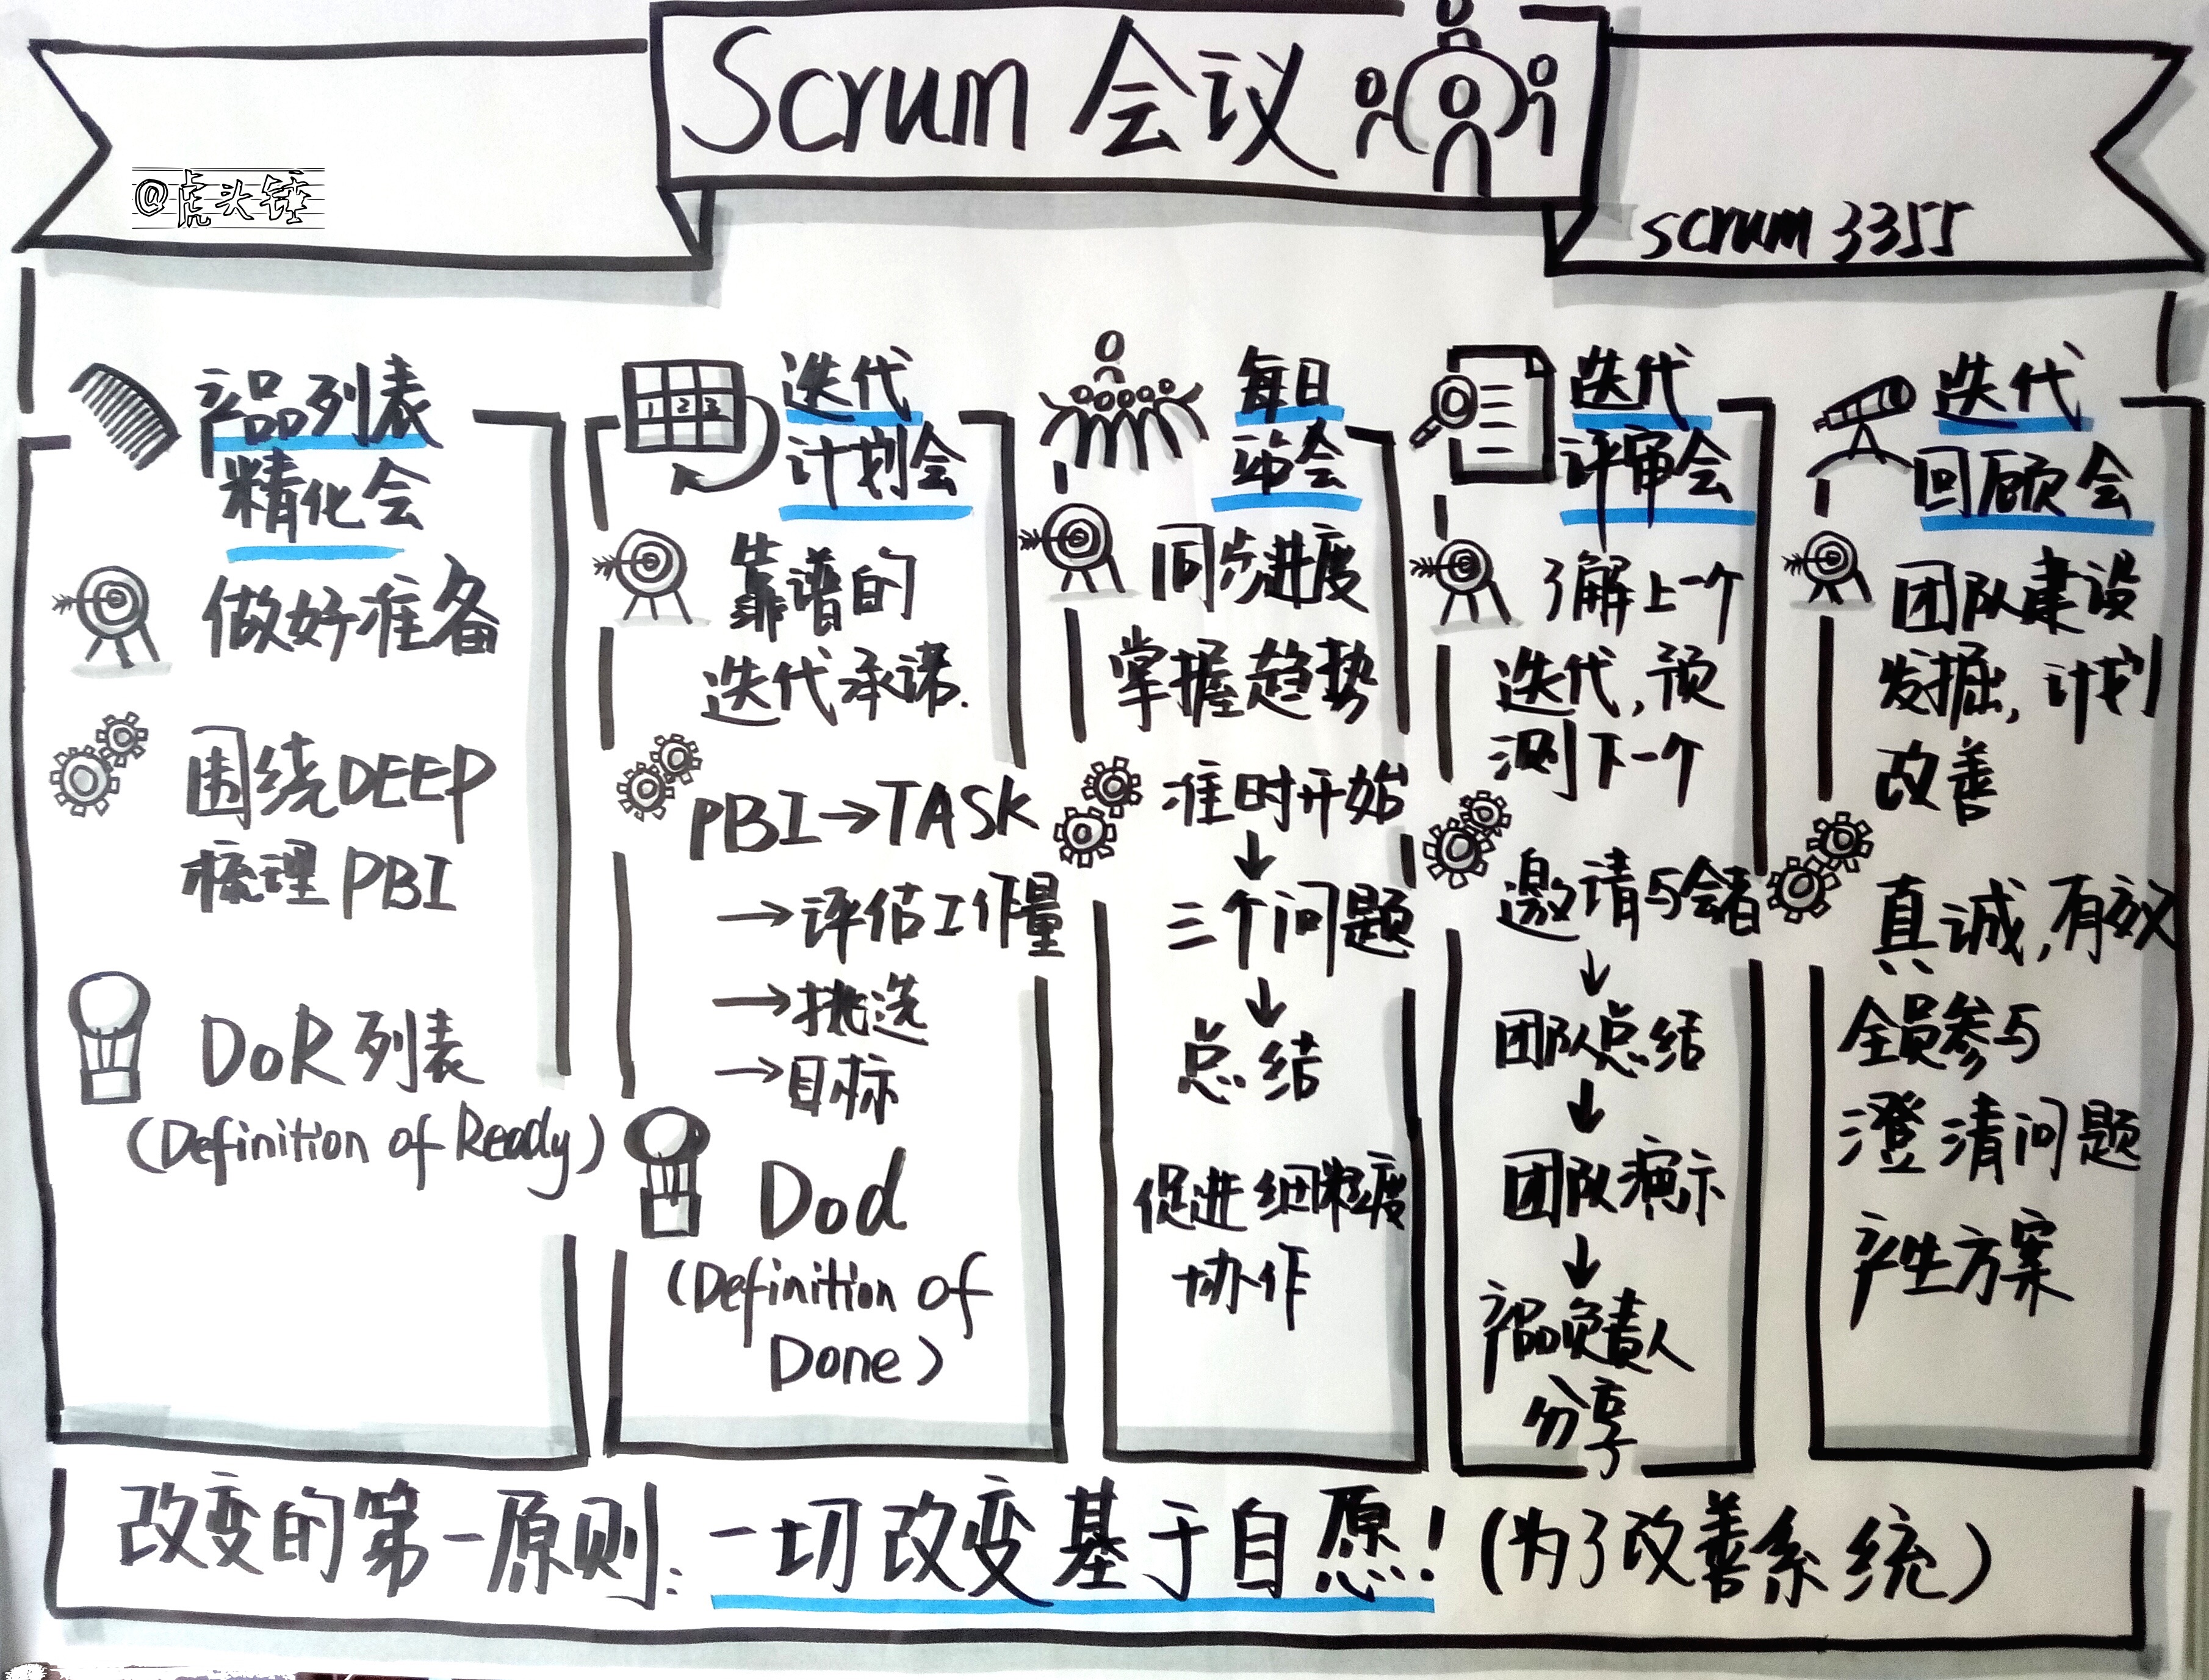 Scrum 会议
@虎头锤
scrum 3355
产品列表
精化会
做好准备
围绕DEEP
梳理PBI
DoR 列表
(Definition of Ready)
迭代
计划会
1 2 3
靠谱的
迭代承诺.
PBI→TASK
→评估工作量
→挑选
→目标
Dod
(Definition of
Done)
每日
站会
同步进度
掌握趋势
准时开始
↓
三个问题
↓
总结
促进细粒度
协作
迭代
评审会
了解上一个
迭代,预
测下一个
邀请与会者
↓
团队总结
↓
团队演示
↓
产品负责人
分享
迭代
回顾会
团队建设
发掘,计划
改善
真诚,有效
全员参与
澄清问题
产生方案
改变的第一原则:一切改变基于自愿!(为了改善系统)